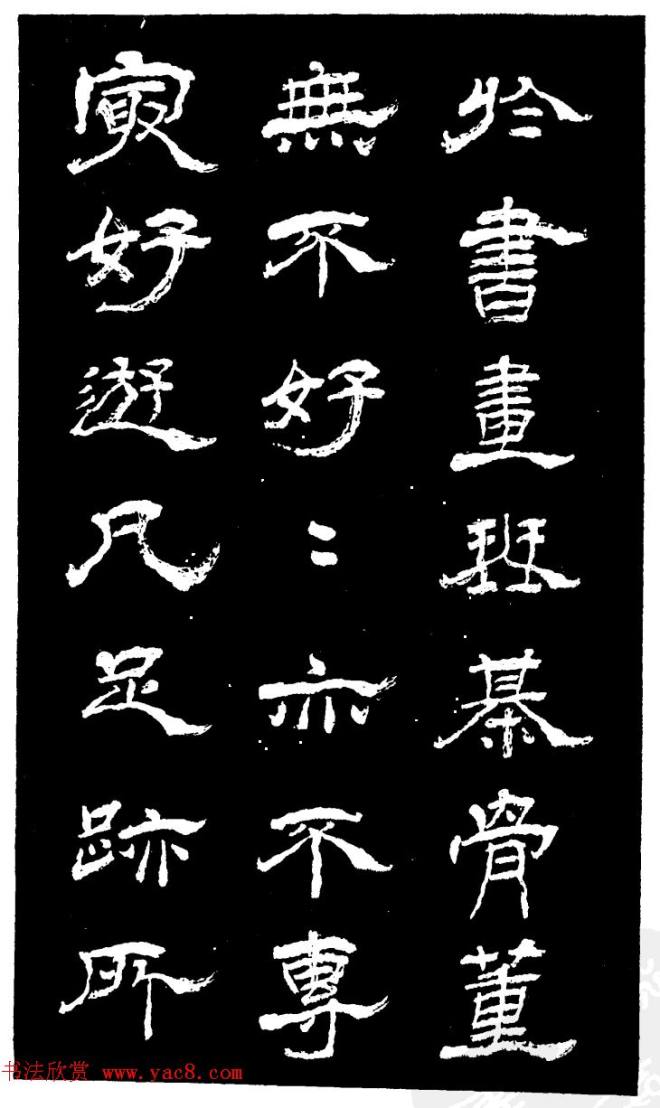 於書畫琴棊骨董
無不好〻亦不專
寂好遊凡足跡所
书法欣赏 www.yac8.com